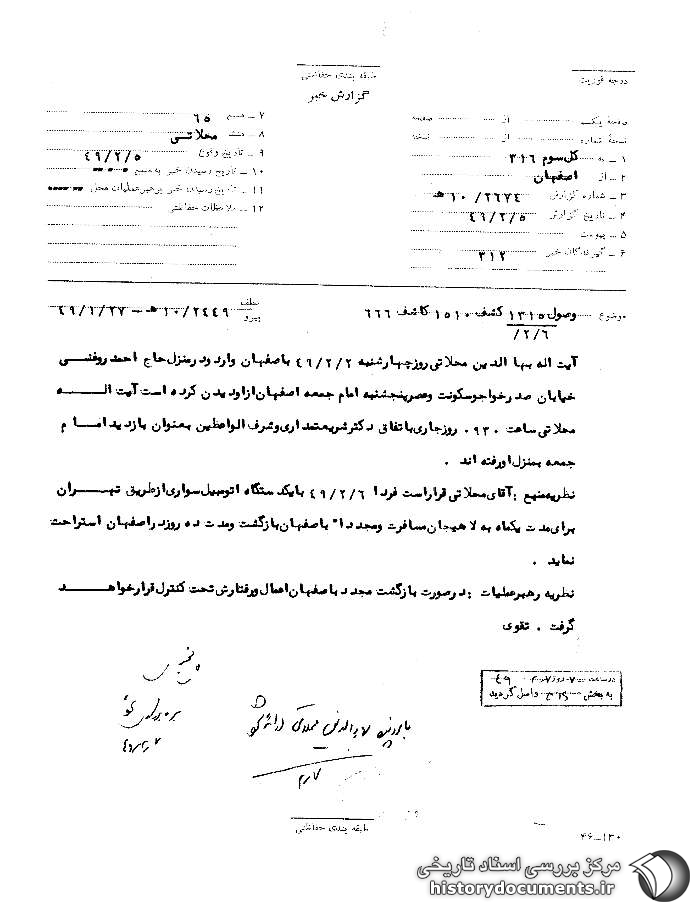 طبقه بندی حفاظتی
گزارش خبر
درجه فوریت
صفحه یک از صفحه
نسخه شماره از نسخه
۱ ـ به کل سوم ۳۱۶
۲ ـ از اصفهان
۳ ـ شماره گزارش ۲۶۷۴/۱۰ هـ
۴ ـ تاریخ گزارش ۴۹/۲/۵
۵ ـ پیوست
۶ ـ گیرندگان خبر ۳۱۲
۷ ـ منبع ۶۵
۸ ـ منشاء محلاتی
۹ ـ تاریخ وقوع ۴۹/۲/۵
۱۰ ـ تاریخ رسیدن خبر به منبع
۱۱ ـ تاریخ رسیدن خبر برهبر عملیات محل
۱۲ ـ ملاحظات حفاظتی
موضوع وصول ۱۳۱۵ کشف ۱۵۱۰ کاشف ۶۶۶
۲/۶/
عطف
پیرو ۱۰/۲۴۴۹ هـ – ۴۹/۱/۲۷
آیت اله بهاالدین محلاتی روز چهارشنبه ۴۹/۲/۲ باصفهان وارد ودرمنزل حاج احمد روغنی
خیابان صدرخواجوسکونت وعصرپنجشنبه امام جمعه اصفهان ازاودیدن کرده است آیت الـــــه
محلاتی ساعت ۰۹۳۰ روزجاری باتفاق دکترشریعتمداری وشرف الواعظین بعنوان بازدید امـام
جمعه بمنزل اورفته اند .
نظریه منبع : آقای محلاتی قراراست فردا ۴۹/۲/۶ بایکدستگاه اتومبیل سواری ازطریق تهـــران
برای مدت یکماه به لاهیجان مسافرت ومجددا" باصفهان بازگشت ومدت ده روزدراصفهان استراحت
نماید .
نظریه رهبرعملیات : درصورت بازگشت مجدد باصفهان اعمال ورفتارش تحت کنترل قرارخواهــد
گرفت . تقوی
درساعت روز ۴۹
به بخش واصل گردید
طبقه بندی حفاظتی
۴۶ــ۱۳۰
مرکز بررسی اسناد تاریخی
historydocuments.ir